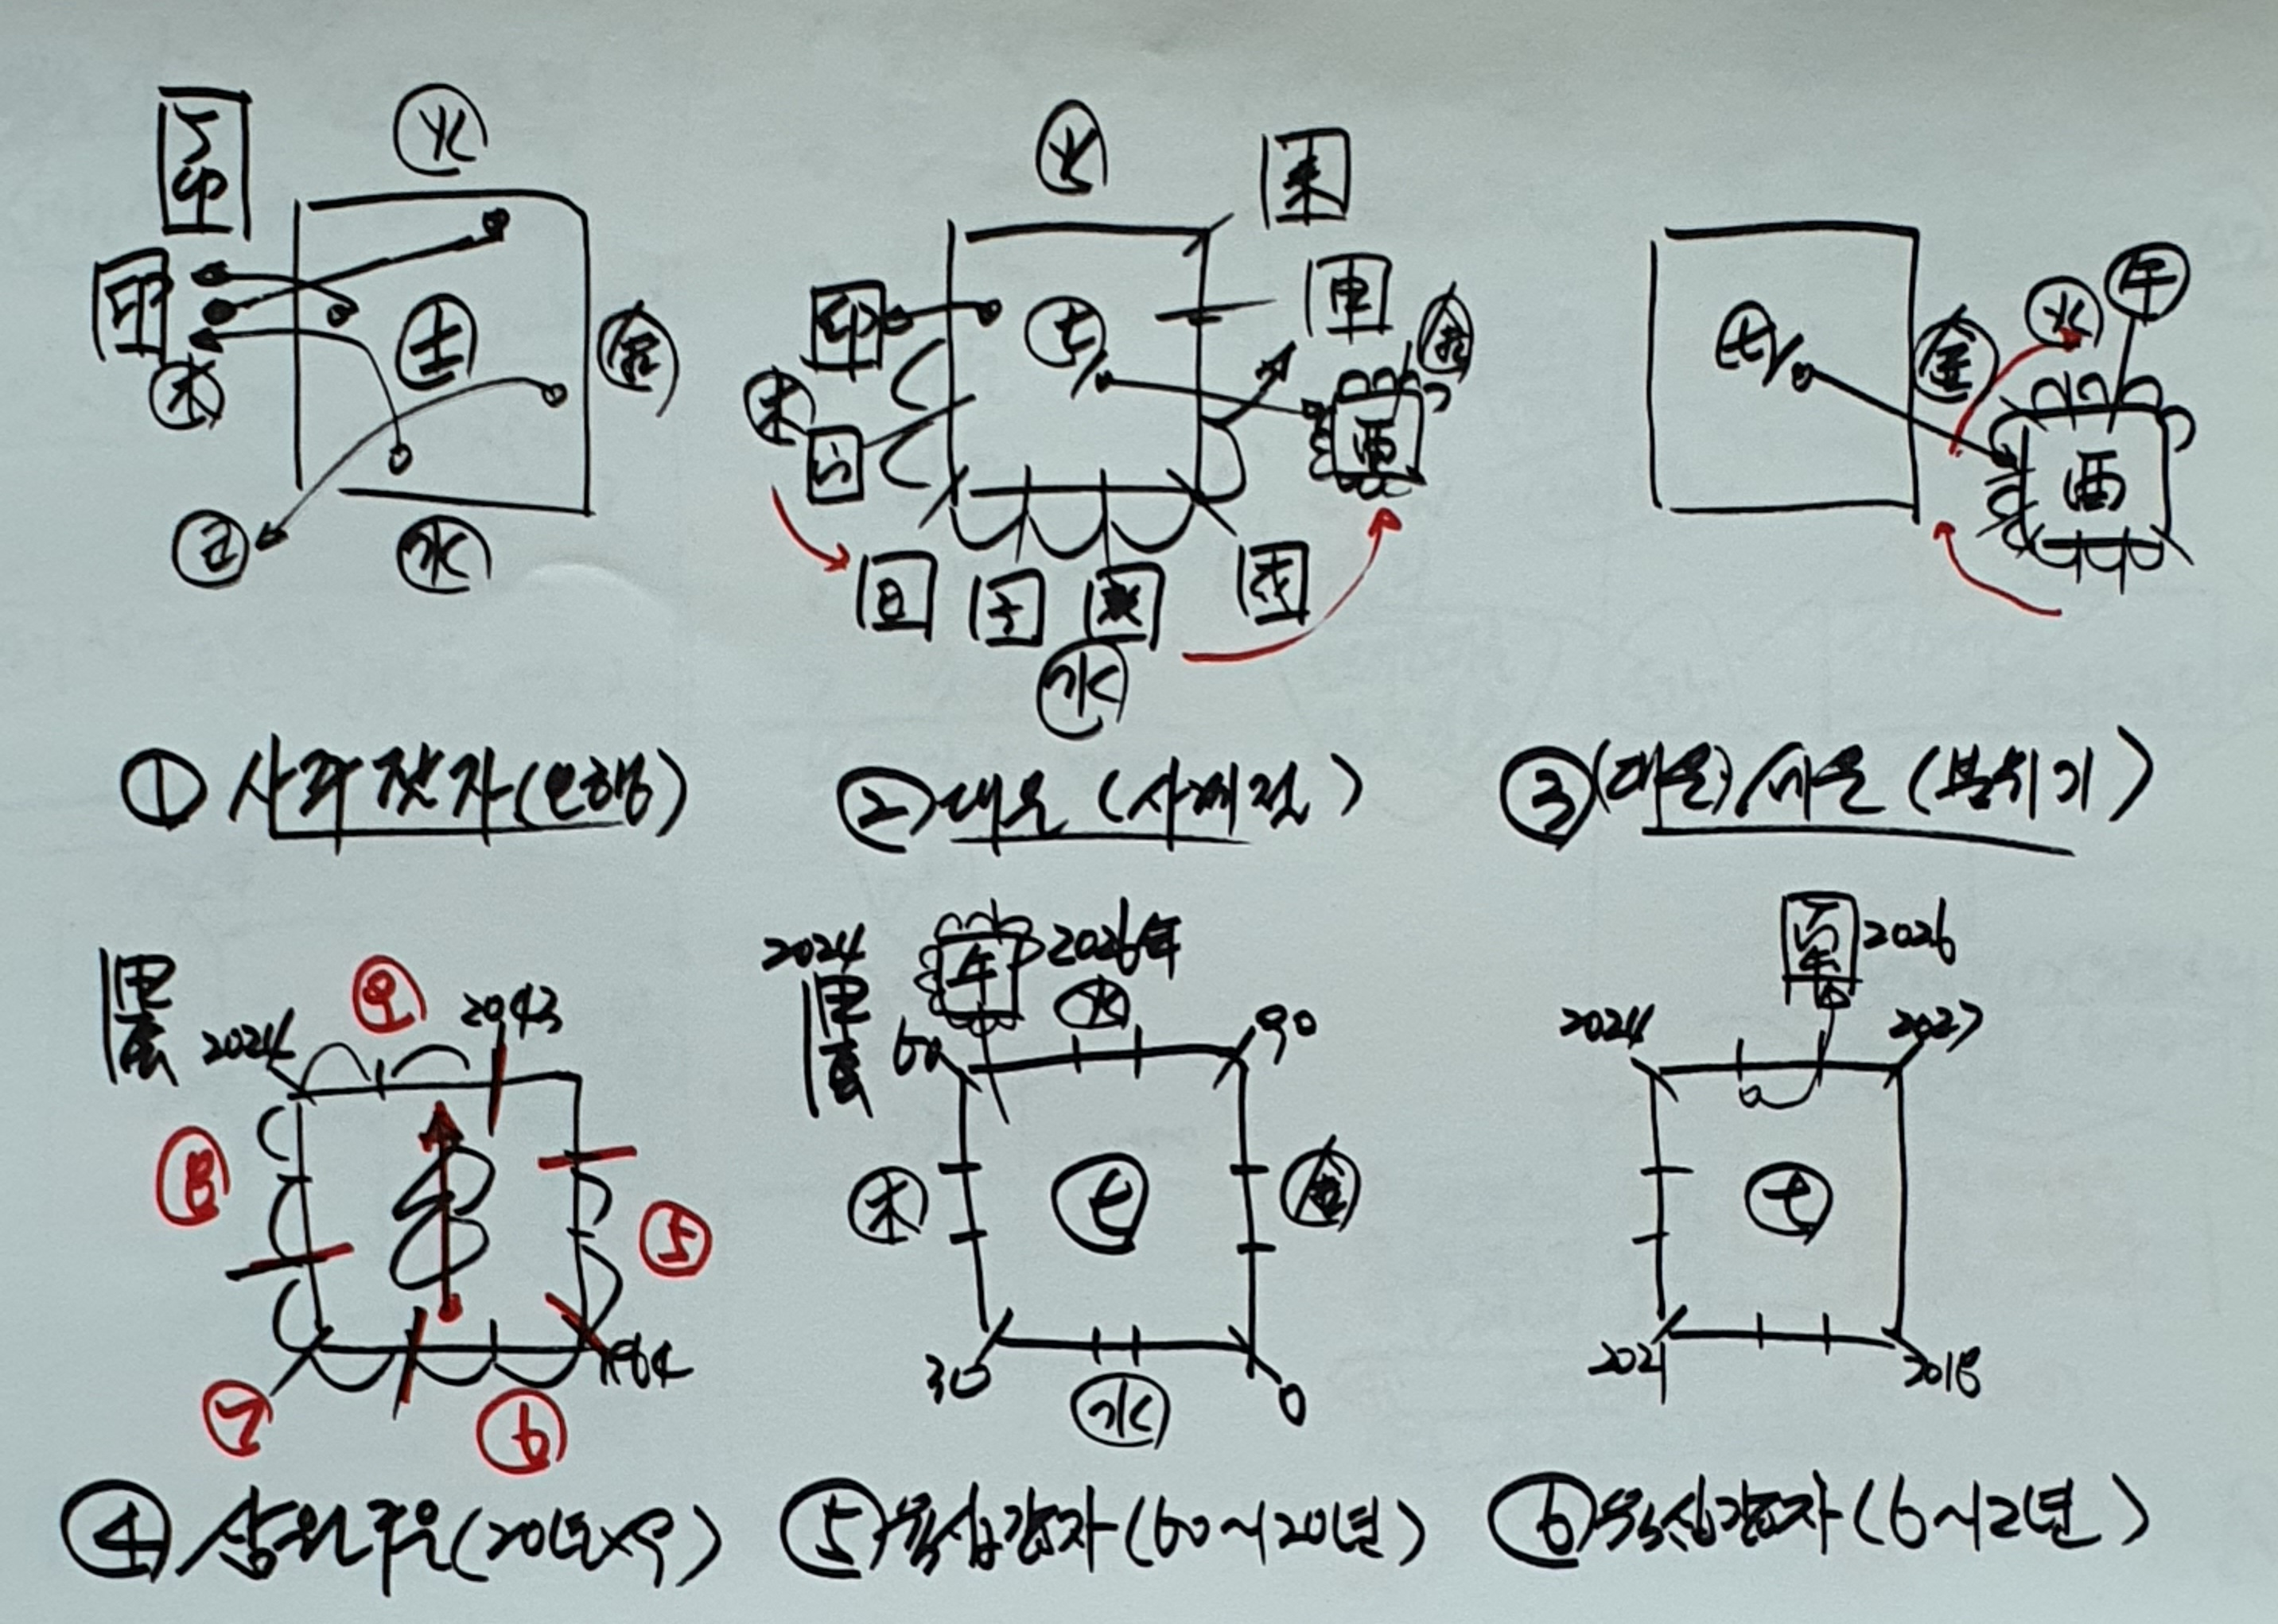 火
土
金
木
水
火
土
金
木
水
卯
申
酉
丑
子
亥
戌
土
金
火
午
酉
① 사팔잣자(오행)
② 대운 (사계절)
③ (대운)세운 (분위기)
甲辰
2024
2043
1964
⑨
⑧
⑦
⑥
⑤
2024
甲辰
午
2026年
火
60
90
木
土
金
30
0
水
丙午
2026
2024
2027
土
2021
2018
④ 삼원구운(20년×9)
⑤ 육십갑자(60~120년)
⑥ 육십갑자(6~12년)